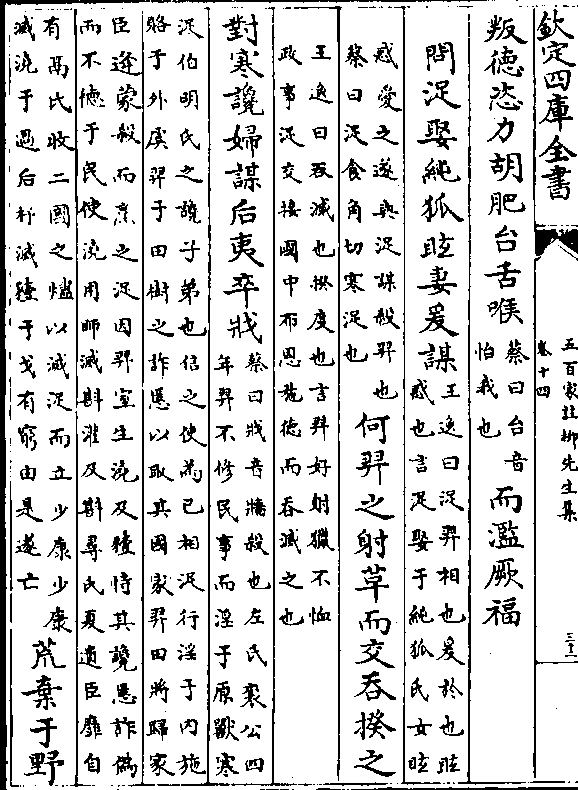 欽定四庫全書
五百家註柳先生集
卷十四
三十一
叛德恣力胡肥台舌喉
蔡曰台音
怡我也
而濫厥福
問浞娶純狐眩妻爰謀
王逸曰浞羿相也爰於也眩
惑也言浞娶于純狐氏女眩
惑愛之遂與浞謀殺羿也
蔡曰浞食角切寒浞也
何羿之射草而交吞揆之
王逸曰吞滅也揆度也言羿好射獵不恤
政事浞交接國中布恩施德而吞滅之也
對寒讒婦謀后夷卒戕
蔡曰戕音牆殺也左氏襄公四
年羿不修民事而淫于原獸寒
浞伯明氏之讒子弟也信之使為己相浞行淫于内施
賂于外虞羿于田樹之詐慝以取其國家羿田將歸家
臣逄蒙殺而烹之浞因羿室生澆及豷恃其讒慝詐偽
而不德于民使澆用師滅斟灌及斟尋氏夏遺臣靡自
有鬲氏收二國之燼以滅浞而立少康少康
滅澆于過后杼滅豷于戈有窮由是遂亡
荒棄于野